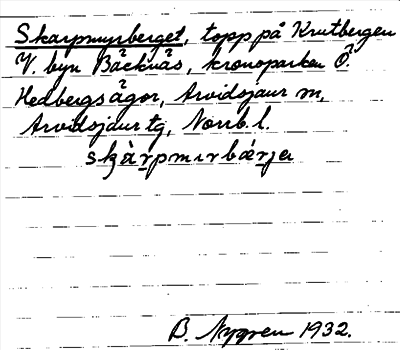 Skarpmyrberget, topp på Krutbergen
V. byn Bäcknäs, kronoparken Ö.
Hedbergsågor, Arvidsjaur sn,
Arvidsjaur tg, Norrb. l.
skàr̲pmɩrbǽr̲jeɩ
B. Nygren 1932.